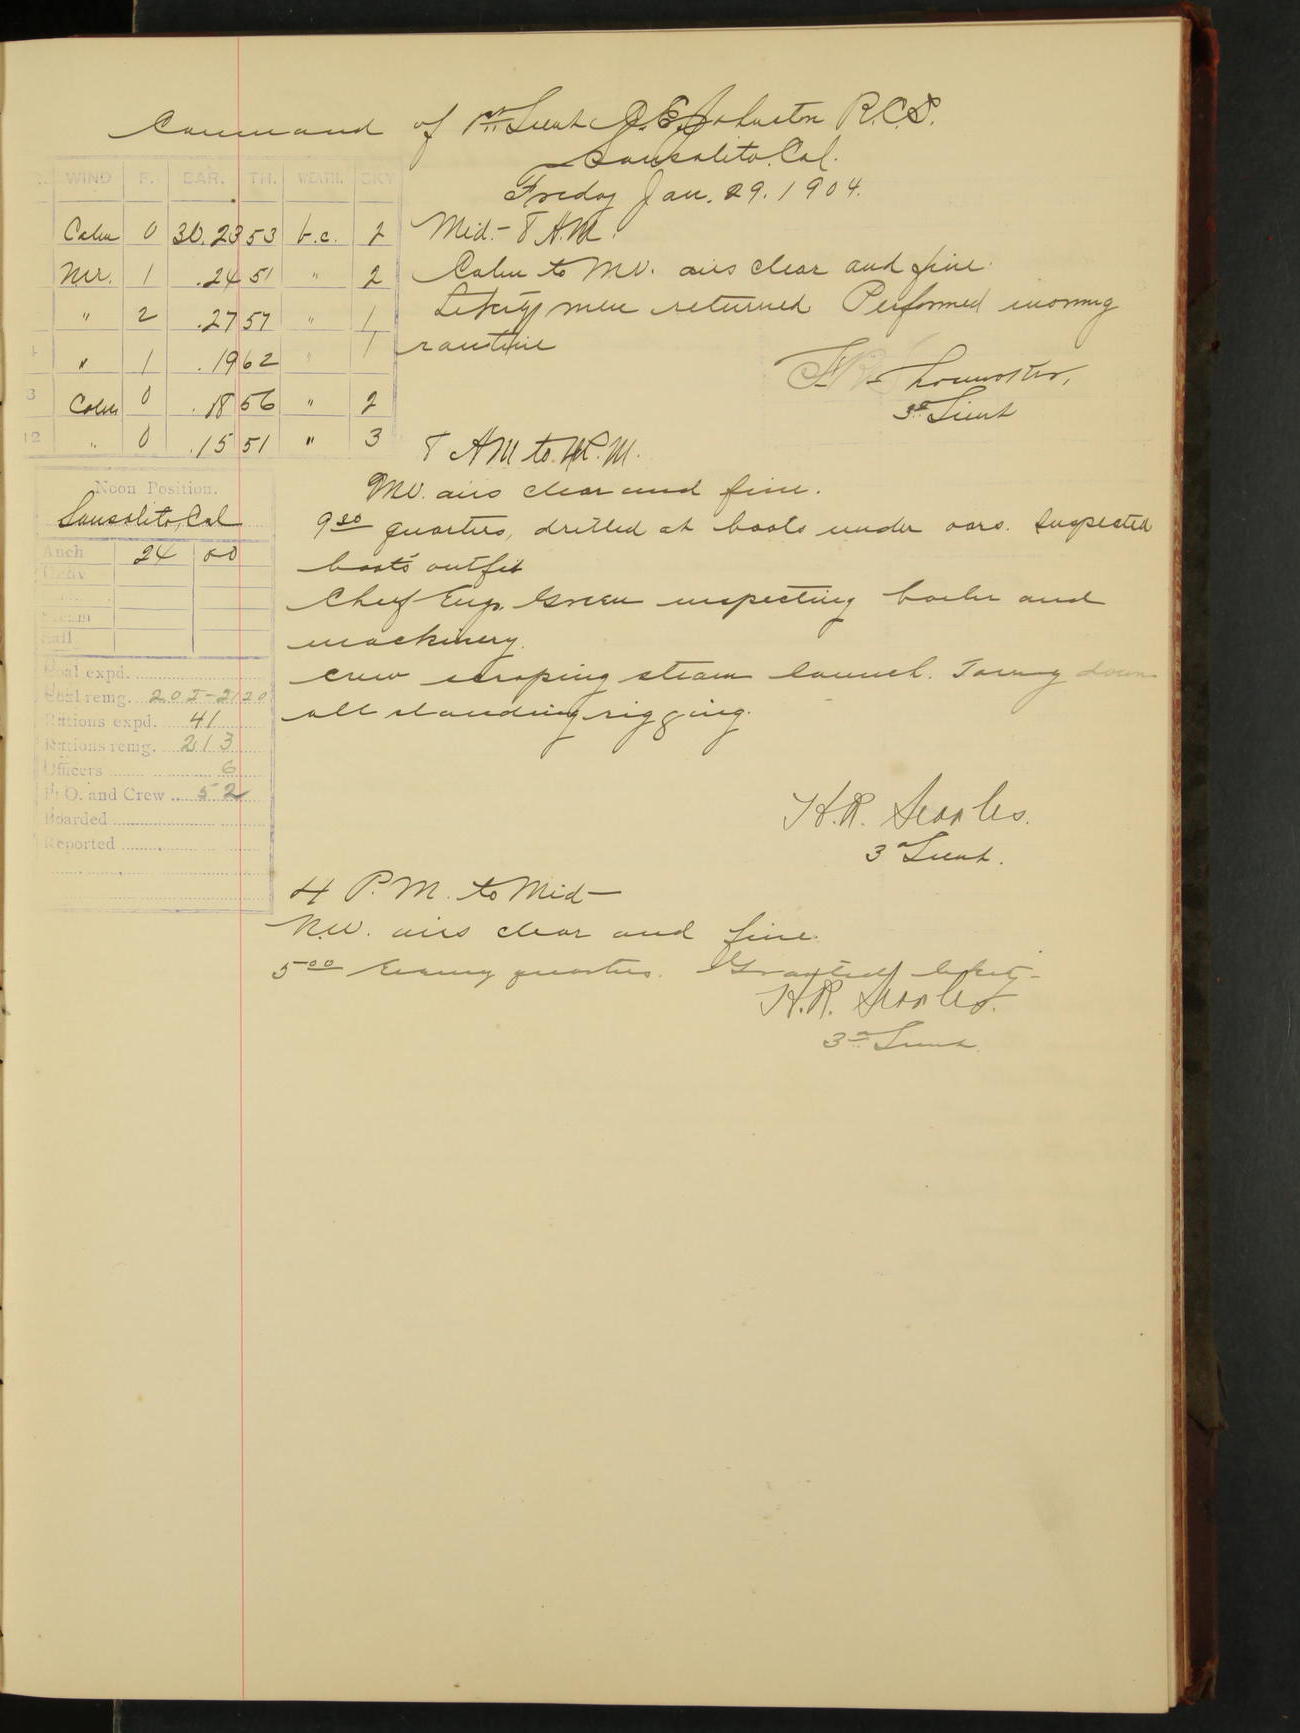 Command of 1st Lieut J.E. Johnston R.C.S.
Sausalito, Cal.
Friday Jan. 29. 1904.
WIND F. BAR. TH. WEATH. SKY
Calm 0 30.23 53 b.c. 2
NW. 1 .24 51 " 2
" 2 .27 57 " 1
4 " 1 .19 62 " 1
8 Calm 0 .18 56 " 2
12 " 0 .15 51 " 3
Mid.- 8 A.M.
Calm to NW. airs clear and fine.
Liberty men returned Performed morning
routine
3d Lieut
Noon Position.
Sausalito, Cal
Anch 24 00
Steam
Sail
Coal expd.
Coal remg. 20
Rations expd. 41
Rations remg. 213
Officers 6
P.O. and Crew 52
Boarded
Reported
8 AM to 4 P.M.
NW. airs clear and fine.
9 30 quarters, drilled at boats under oars. Inspected
boats outfit
Chief Engr. Green inspecting boiler and
machinery.
Crew scraping steam launch. Tarring down
all standing rigging.
H.R. Searles.
3d Lieut.
4 P.M. to Mid-
N.W. airs clear and fine.
5 00 Evening quarters. Granted liberty-
H.R. Searles.
3d Lieut